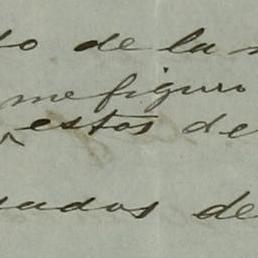 to de la
me figuro
estos de
sados de